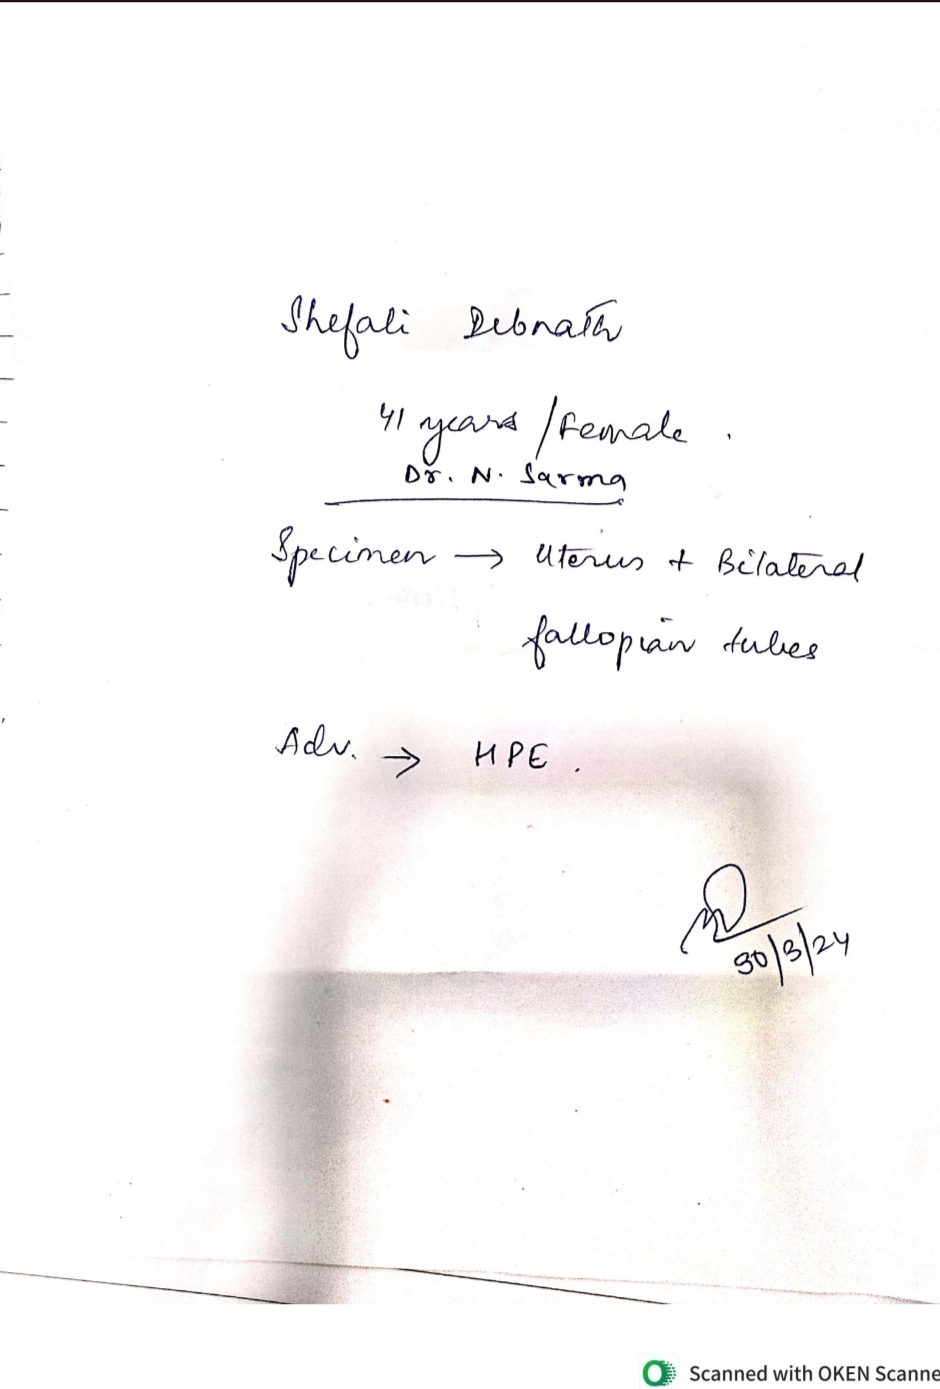 Shefali Debnath
41 years / Female.
Dr. N. Sarma
Specimen → Uterus + Bilateral
fallopian tubes
Adv. → HPE.
30/3/24
Scanned with OKEN Scanne